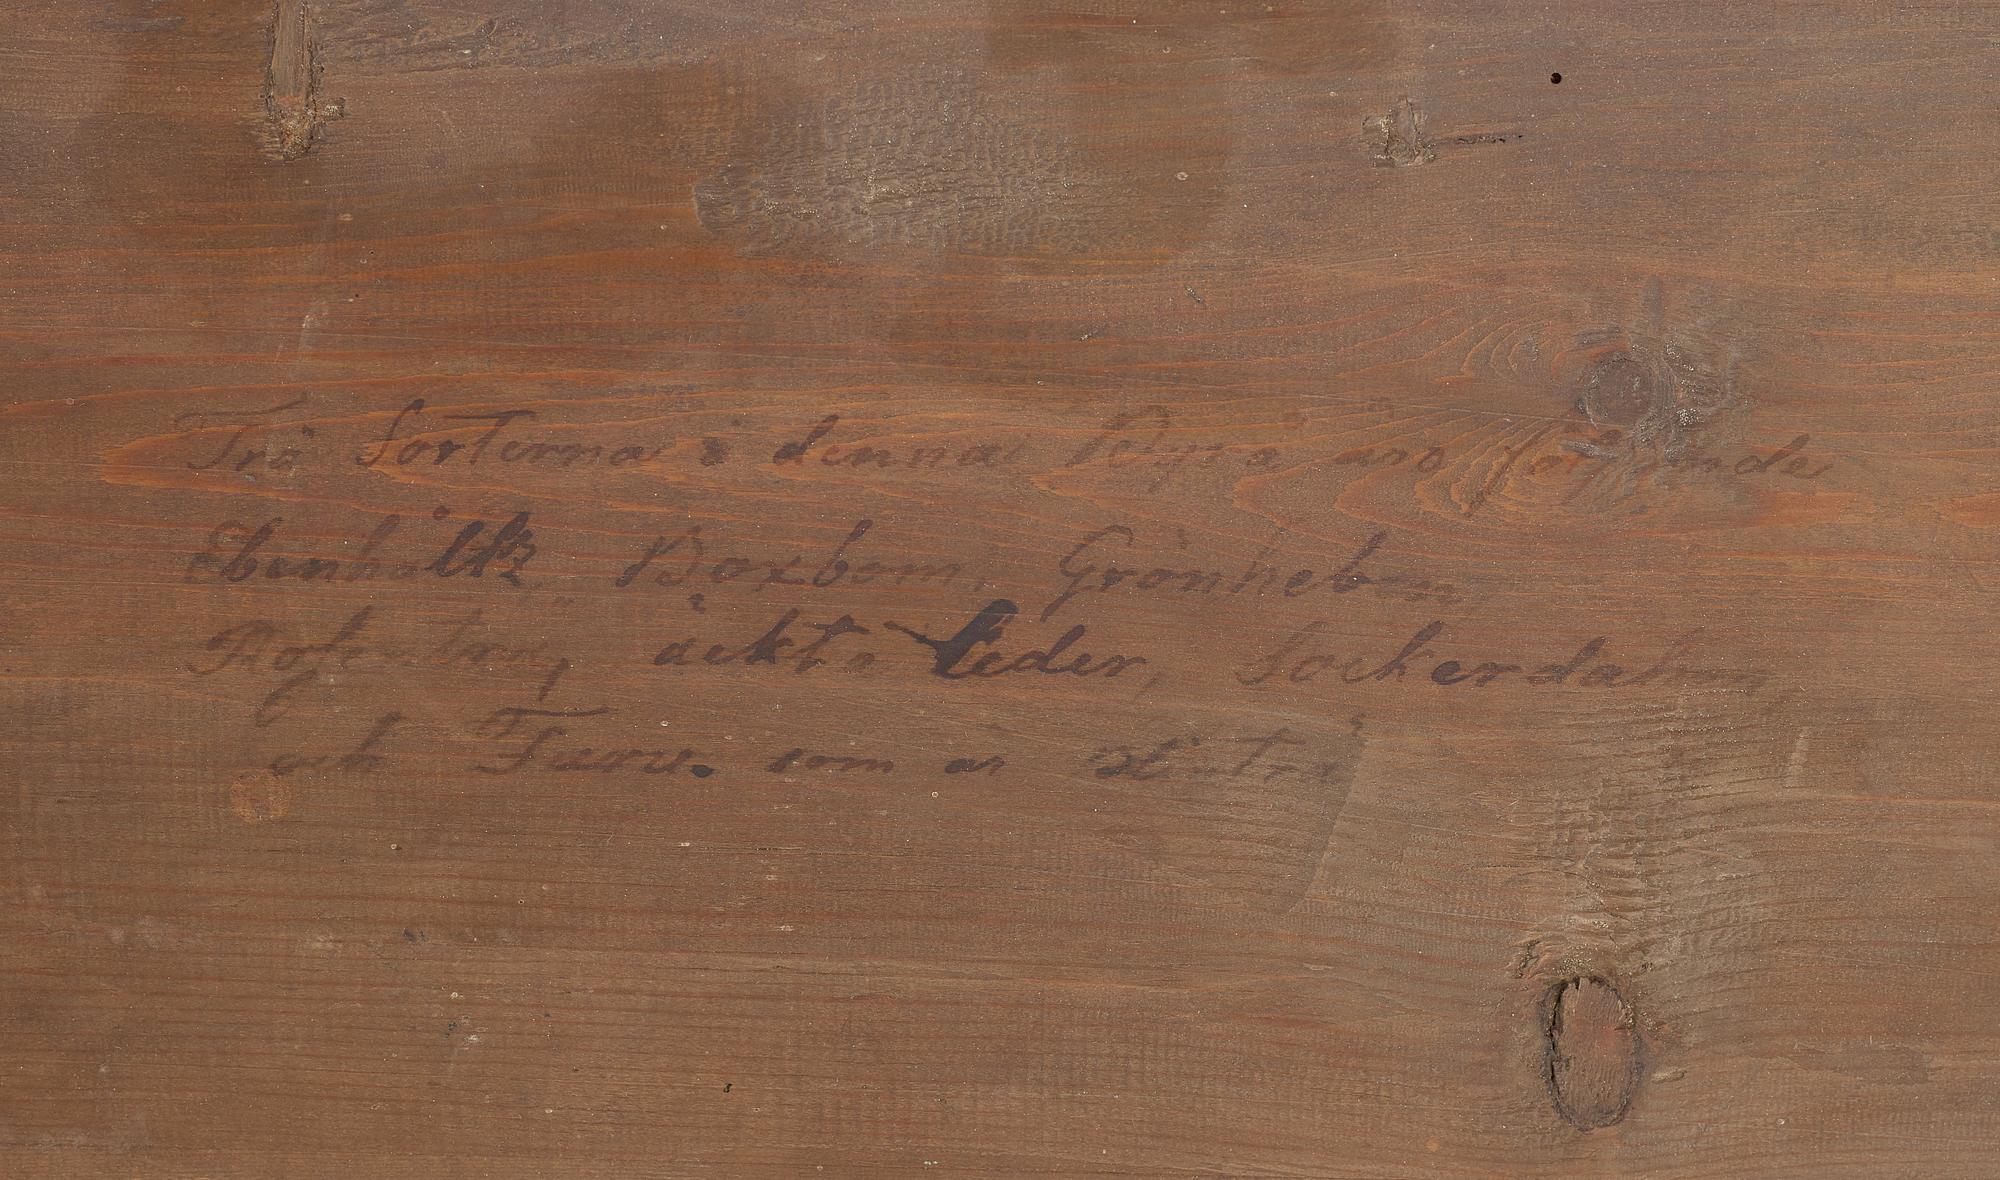 Trä Sorterna i denna Byrå äro följande
Ebenholtz Boxbom, Grönheben
Rosenträ, äckta Ceder, Sockerdahn,
och Furu. som är